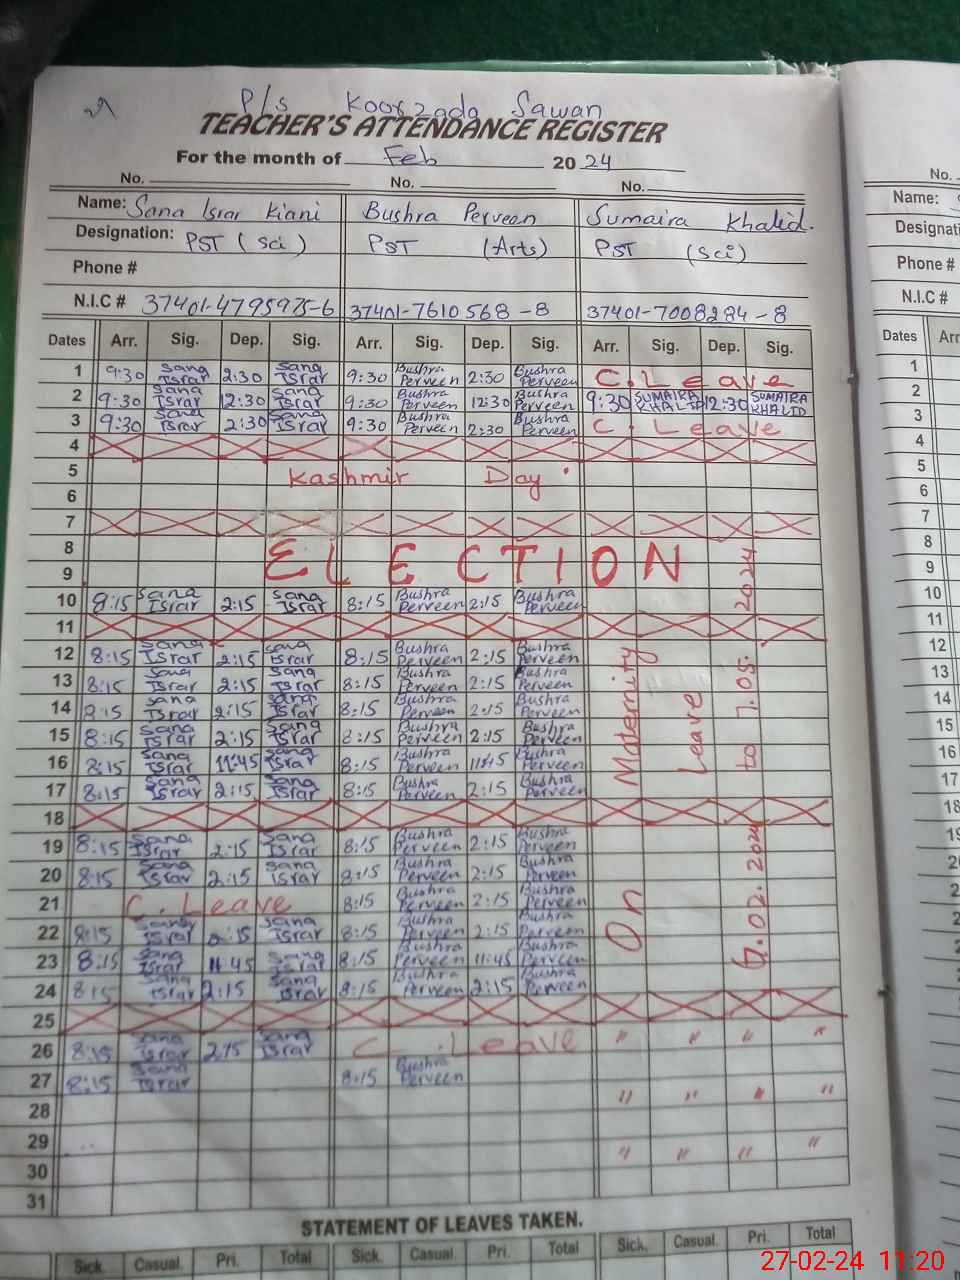 P/s Koorzada Sawan
TEACHER'S ATTENDANCE REGISTER
For the month of Feb 20 24
No. No. No. No.
Name: Sana Israr Kiani Bushra Perveen Sumaira Khalid. Name:
Designation: PST (Sci) PST (Arts) PST (Sci) Designati
Phone # Phone #
N.I.C # 37401-4795975-6 37401-7610568-8 37401-7008284-8 N.I.C #
Dates Arr. Sig. Dep. Sig. Arr. Sig. Dep. Sig. Arr. Sig. Dep. Sig. Dates Arr
1 9:30 Sana Israr 2:30 Sana Israr 9:30 Bushra Perveen 2:30 Bushra Perveen C. Leave 1
2 9:30 Sana Israr 12:30 Sana Israr 9:30 Bushra Perveen 12:30 Bushra Perveen 9:30 SUMAIRA KHALID 12:30 SUMAIRA KHALID 2
3 9:30 Sana Israr 2:30 Sana Israr 9:30 Bushra Perveen 2:30 Bushra Perveen C. Leave 3
4 4
5 Kashmir Day 5
6 6
7 7
8 ELECTION 8
9 9
10 8:15 Sana Israr 2:15 Sana Israr 8:15 Bushra Perveen 2:15 Bushra Perveen 10
11 11
12 8:15 Sana Israr 2:15 Sana Israr 8:15 Bushra Perveen 2:15 Bushra Perveen 12
13 8:15 Sana Israr 2:15 Sana Israr 8:15 Bushra Perveen 2:15 Bushra Perveen 13
14 8:15 Sana Israr 2:15 Sana Israr 8:15 Bushra Perveen 2:15 Bushra Perveen 14
15 8:15 Sana Israr 2:15 Sana Israr 8:15 Bushra Perveen 2:15 Bushra Perveen 15
16 8:15 Sana Israr 11:45 Sana Israr 8:15 Bushra Perveen 11:45 Bushra Perveen 16
17 8:15 Sana Israr 2:15 Sana Israr 8:15 Bushra Perveen 2:15 Bushra Perveen 17
18 18
19 8:15 Sana Israr 2:15 Sana Israr 8:15 Bushra Perveen 2:15 Bushra Perveen 19
20 8:15 Sana Israr 2:15 Sana Israr 8:15 Bushra Perveen 2:15 Bushra Perveen
21 C. Leave 8:15 Bushra Perveen 2:15 Bushra Perveen
22 8:15 Sana Israr 2:15 Sana Israr 8:15 Bushra Perveen 2:15 Bushra Perveen
23 8:15 Sana Israr 11:45 Sana Israr 8:15 Bushra Perveen 11:45 Bushra Perveen
24 8:15 Sana Israr 2:15 Sana Israr 8:15 Bushra Perveen 2:15 Bushra Perveen
On Maternity
Leave
to 7.05. 2024
25
26 8:15 Sana Israr 2:15 Sana Israr C. Leave " " " "
27 8:15 Sana Israr 8:15 Bushra Perveen " " " "
28
29 " " " "
30
31
STATEMENT OF LEAVES TAKEN.
Sick. Casual. Pri. Total Sick. Casual. Pri. Total Sick. Casual. Pri. Total
27-02-24 11:20